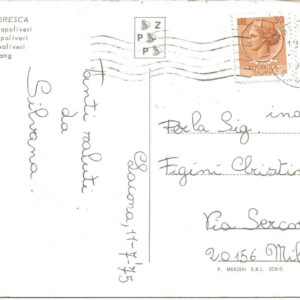 ORESCA
apoliveri
apoliveri
apoliveri
ang
Tanti saluti
da
Silvana.
11-7-75
Per la Sig.ina
Figini Christin
Via Serco
20156 Mil
F. MANZARI S.R.L. SEDIS